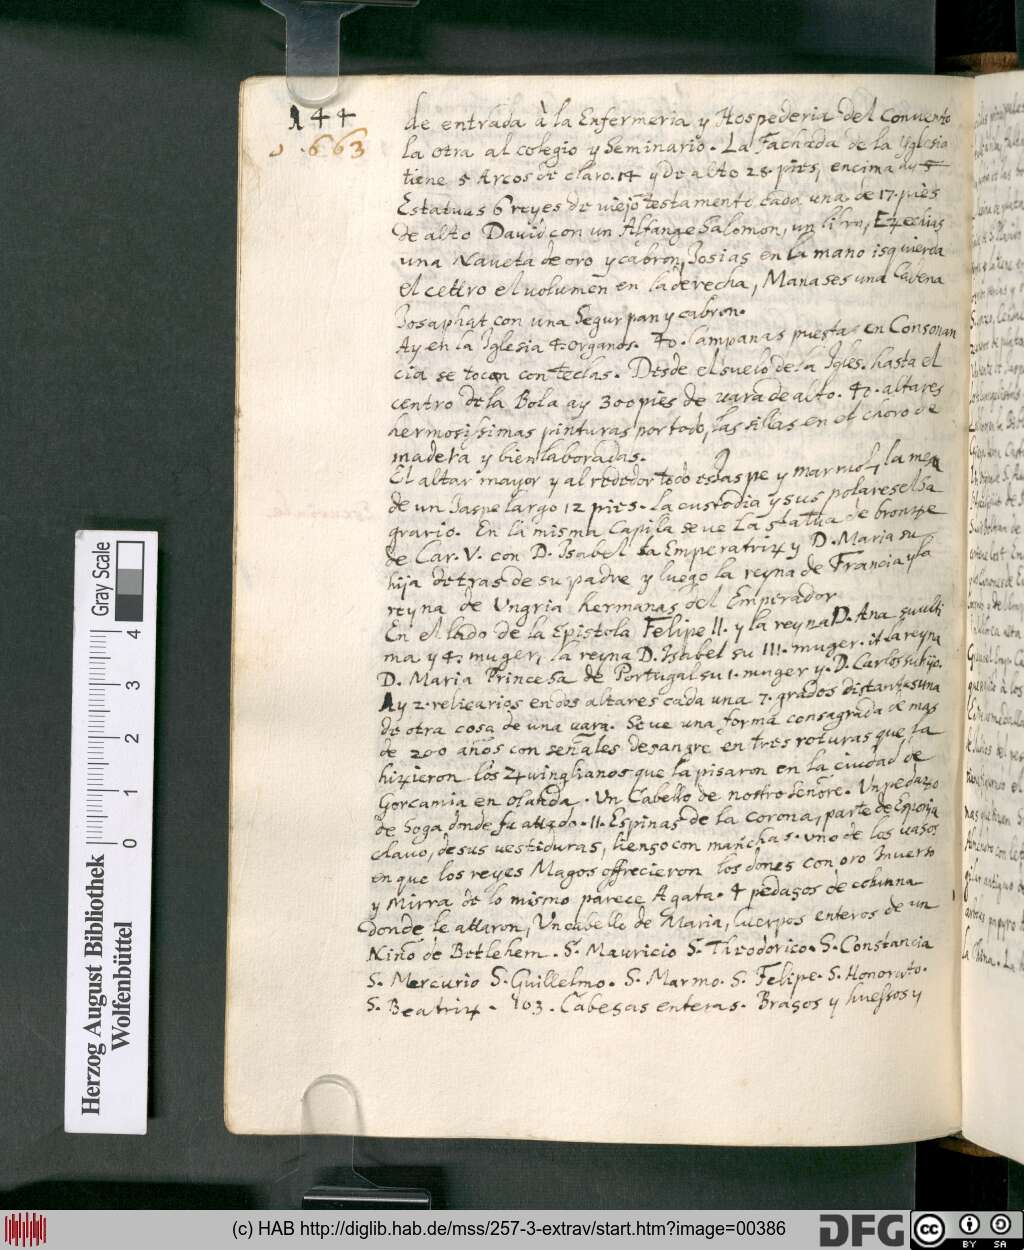 144
663
de entrada à la Enfermeria y Hospederia del Convento
la otra al colegio y Seminario. La Fachada de la Yglesia
tiene 5 Arcos de claro. 14 y de alto 28. pies, encima ay 5
Estatuas 6 reyes de viejo testamento cada una de 17. pies
de alto David con un Alfange Salomon, un libro, Ezechias
una Naveta de oro y cabron, Josias en la mano isquierda
el cettro el volumen en la derecha, Manases una Cadena
Josaphat con una Segur pan y cabron.
Ay en la Iglesia 4. organos. 40. Campanas puestas en Consonan
cia se tocan con teclas. Desde el suelo de la Igles. hasta el
centro de la Bola ay 300 pies de vara de alto. 40. altares
hermosissimas pinturas por todo, las sillas en el choro de
madera y bien laboradas.
El altar mayor y al rededor todo es Jaspe y marmol, la mesa
de un Jaspe largo 12 pies. la custodia y sus polares el Sa
grario. En la misma Capilla se ve la statua de bronze
de Car. V. con D. Isabel la Emperatriz y D. Maria su
hija detras de su padre y luego la reyna de Francia y la
reyna de Ungria hermanas del Emperador
En el lado de la Epistola Felipe II. y la reyna D. Ana su ulti
ma y 4. muger, la reyna D. Isabel su III. muger. it. la reyna
D. Maria Princesa de Portugal su 1. muger y. D. Carlos su hijo.
Ay 2. relicarios en dos altares cada una 7. grados distantes una
de otra cosa de una vara. Se ve una forma consagrada de mas
de 200 años con señales de sangre en tres roturas que la
hizieron los Zwinglianos que la pisaron en la ciudad de
Gorcamia en olanda. Un Cabello de nostro señore. Un pedazo
de Soga donde fu attado. 11. Espinas de la corona, parte de Esponja
clavo, de sus vestiduras, lienso con manchas. uno de los vasos
en que los reyes Magos offrecieron los dones con oro Inverso
y Mirra de lo mismo parece Agata. 4 pedasos de columna
donde le attaron, Un cabello de Maria, Cuerpos enteros de un
Niño de Betlehem. S. Mauricio S. Theodorico. S. Constancia
S. Mercurio S. Guillelmo. S. Marmo. S. Felipe. S. Honorato.
S. Beatriz. 103. Cabesas enteras. Brasos y huessos y
Gray Scale
0 1 2 3 4
Herzog August Bibliothek
Wolfenbüttel
(c) HAB http://diglib.hab.de/mss/257-3-extrav/start.htm?image=00386
DFG
cc BY SA